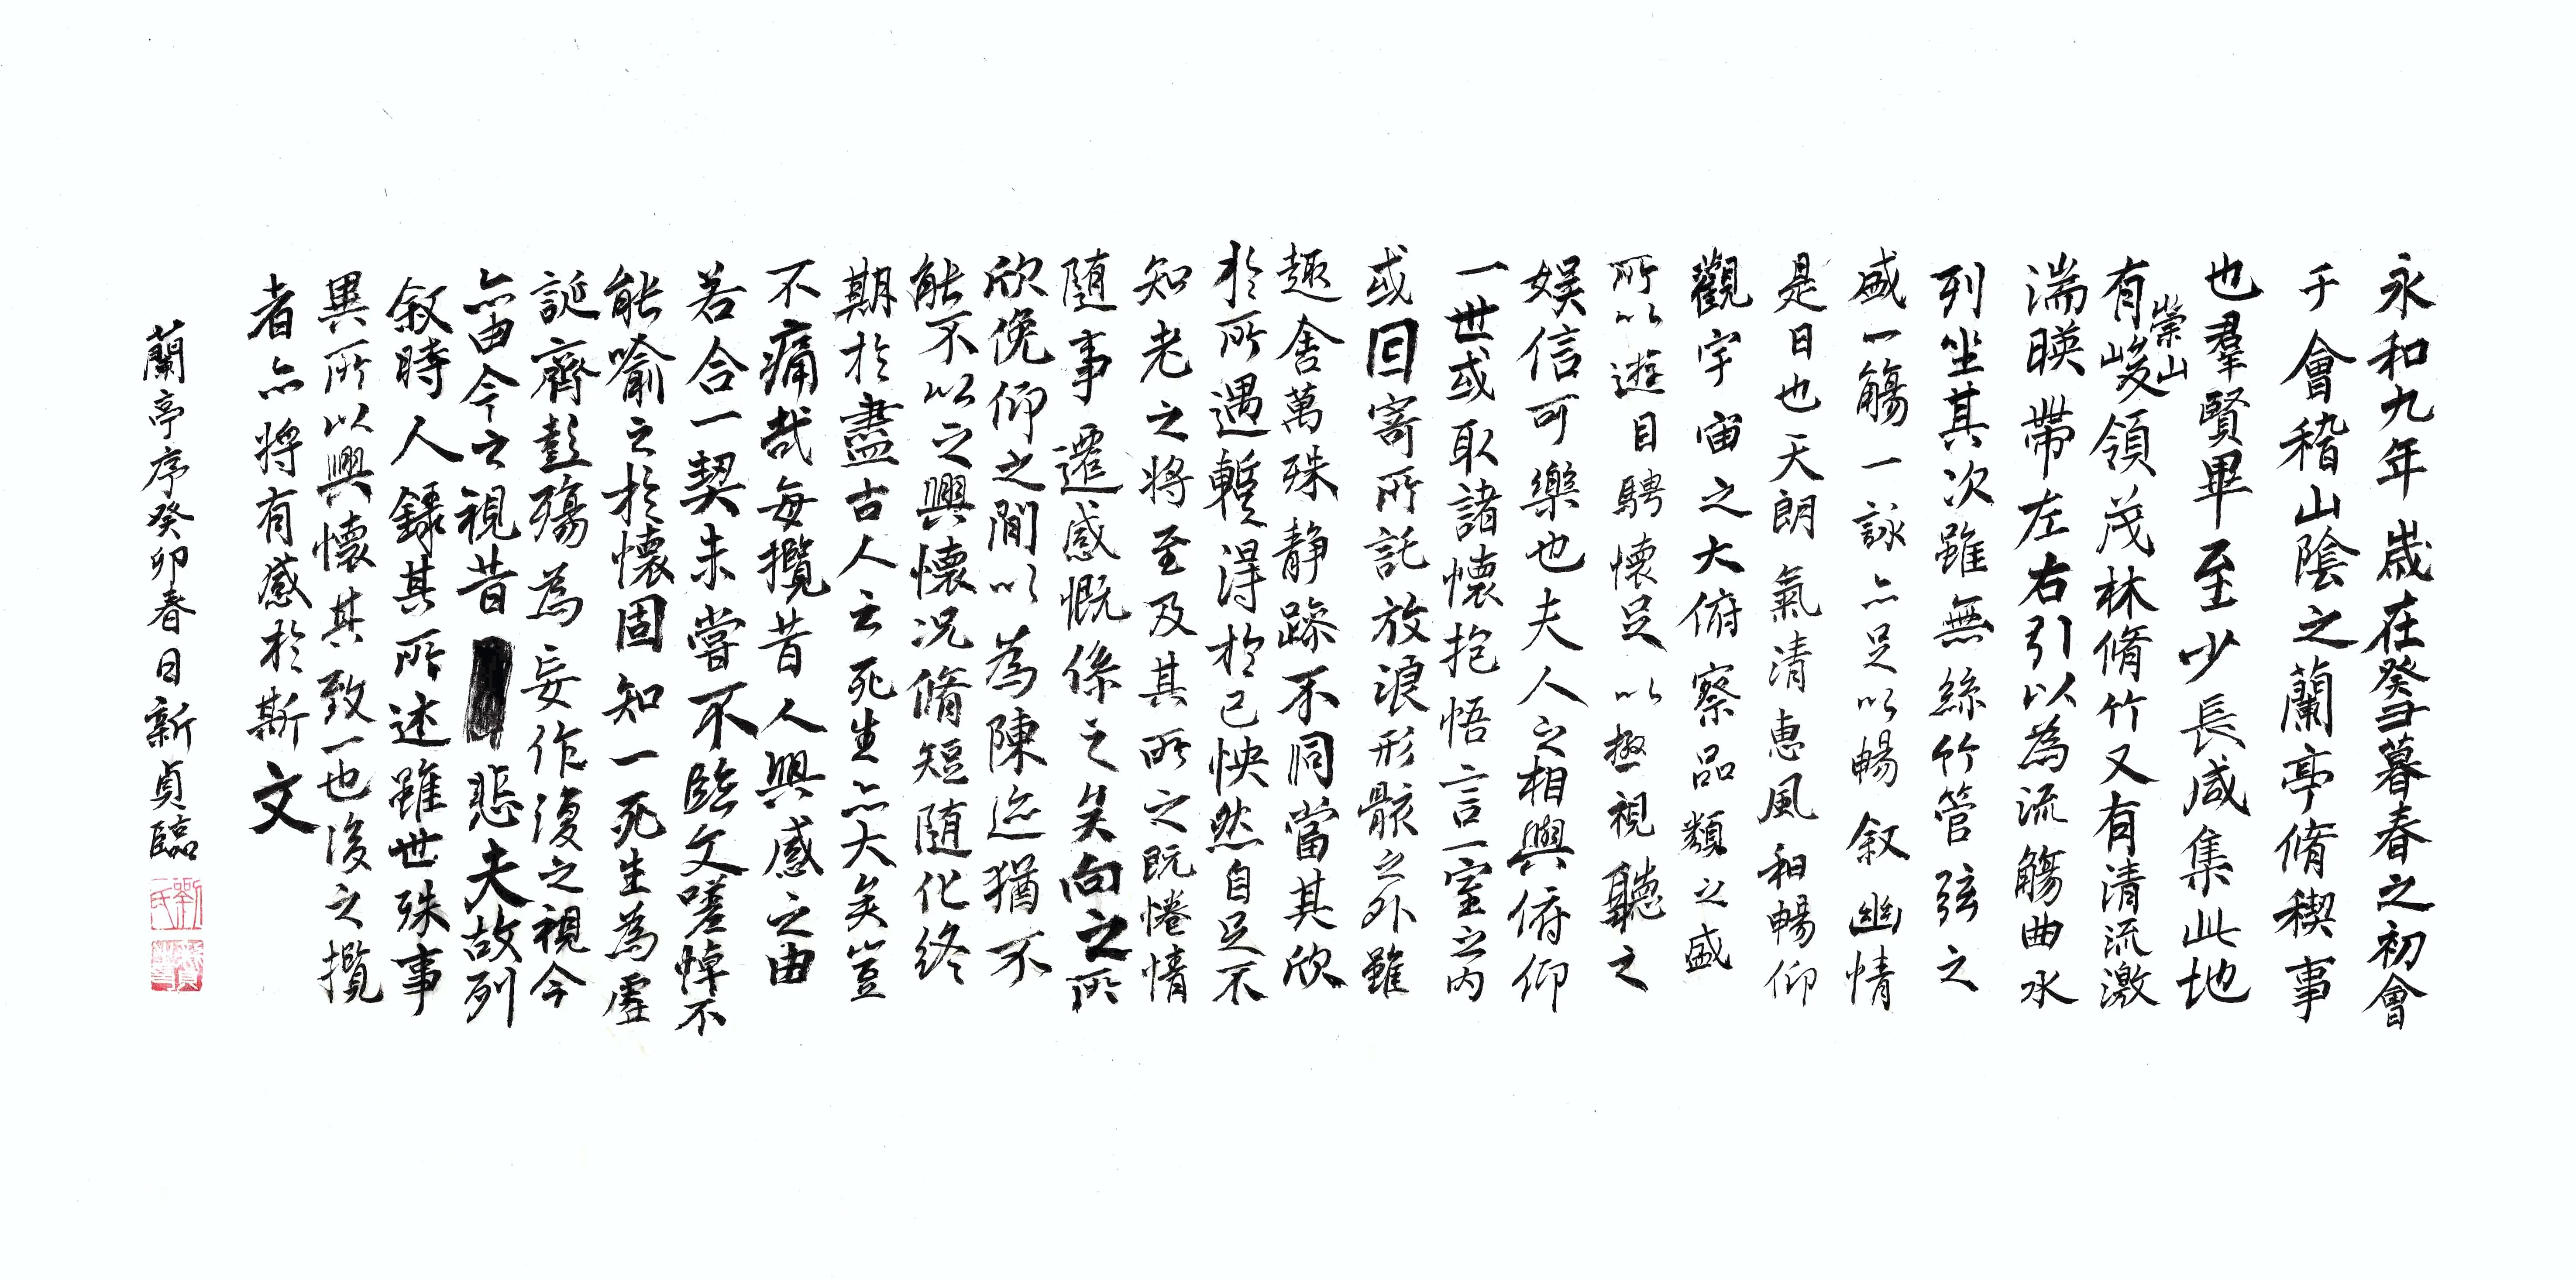 永和九年歲在癸丑暮春之初會
于會稽山陰之蘭亭脩稧事
也羣賢畢至少長咸集此地
有崇山峻領茂林脩竹又有清流激
湍暎帶左右引以為流觴曲水
列坐其次雖無絲竹管弦之
盛一觴一詠亦足以暢叙幽情
是日也天朗氣清惠風和暢仰
觀宇宙之大俯察品類之盛
所以遊目騁懷足以極視聽之
娛信可樂也夫人之相與俯仰
一世或取諸懷抱悟言一室之內
或因寄所託放浪形骸之外雖
趣舍萬殊靜躁不同當其欣
於所遇暫得於己怏然自足不
知老之將至及其所之既惓情
隨事遷感慨係之矣向之所
欣俛仰之閒以為陳迹猶不
能不以之興懷况脩短隨化終
期於盡古人云死生亦大矣豈
不痛哉每攬昔人興感之由
若合一契未嘗不臨文嗟悼不
能喻之於懷固知一死生為虛
誕齊彭殤為妄作後之視今
亦由今之視昔悲夫故列
叙時人錄其所述雖世殊事
異所以興懷其致一也後之攬
者亦將有感於斯文
蘭亭序癸卯春日新貞臨
劉氏